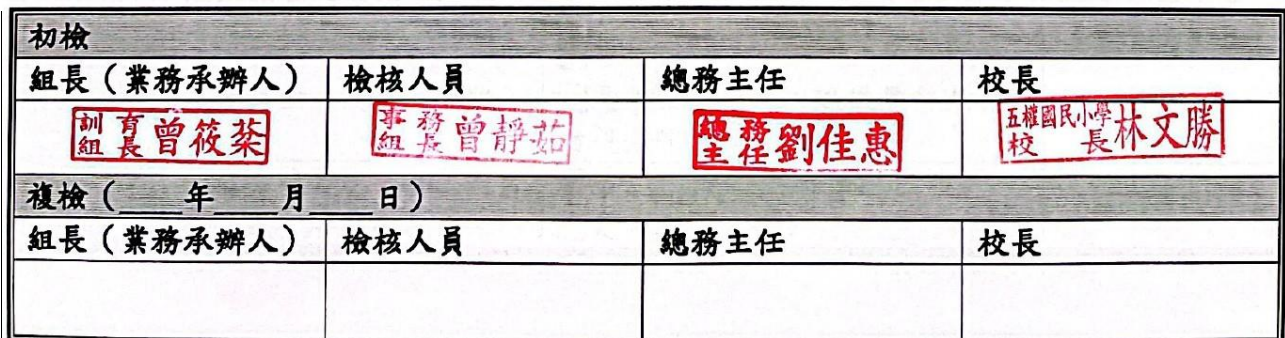 初檢
組長（業務承辦人） 檢核人員 總務主任 校長
訓育組長曾筱棻 事務組長曾靜茹 總務主任劉佳惠 五權國民小學校長林文勝
複檢（＿＿年＿＿月＿＿日）
組長（業務承辦人） 檢核人員 總務主任 校長